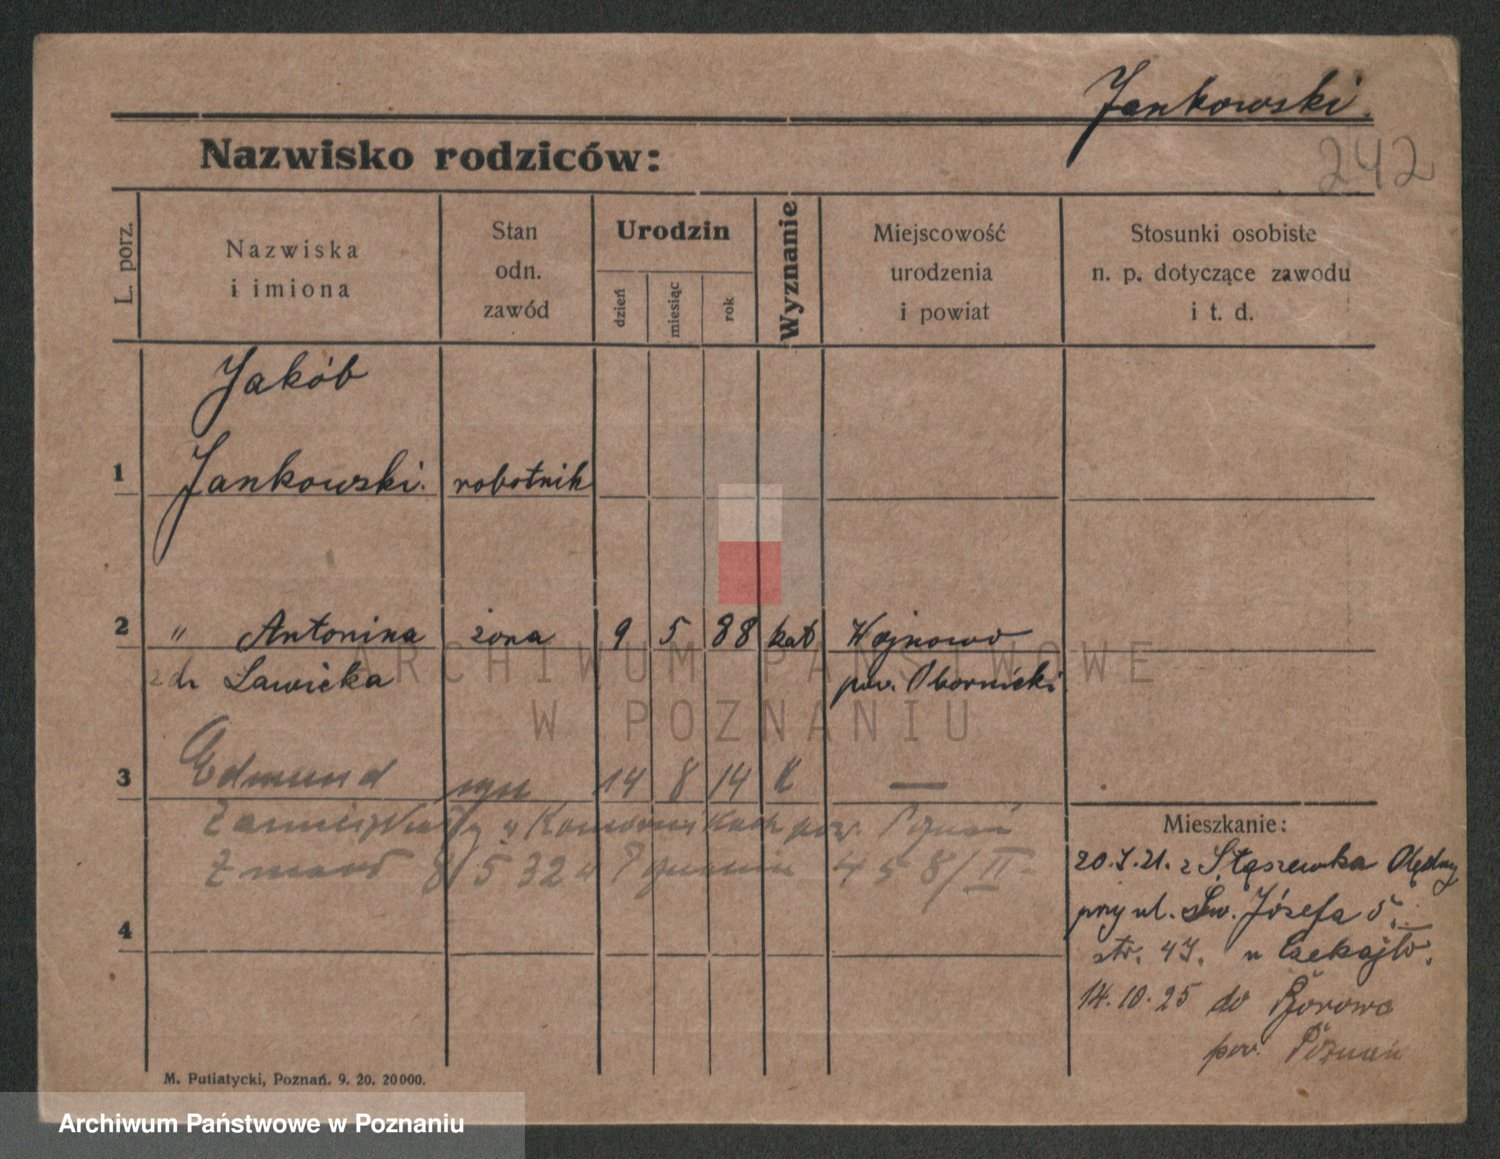 Jankowski.
242
Nazwisko rodziców:
L. porz.
Nazwiska
i imiona
Stan
odn.
zawód
Urodzin
dzień
miesiąc
rok
Wyznanie
Miejscowość
urodzenia
i powiat
Stosunki osobiste
n. p. dotyczące zawodu
i t. d.
Jakób
1 Jankowski. robotnik
2 " Antonina żona 9 5 88 kat Wojnowo
dr Ławicka pow. Obornicki
3 Edmund syn 14 8 14 K —
Zamieszkały w Komornikach pow. Poznań
Zmarł 8/5 32 w Poznaniu 458/II.
4
Mieszkanie:
20.7.21. z
przy ul. Św. Józefa 5.
str. 47. u
14.10.25 do Borowo
pow. Poznań
M. Putiatycki, Poznań. 9. 20. 20000.
ARCHIWUM PAŃSTWOWE
W POZNANIU
Archiwum Państwowe w Poznaniu